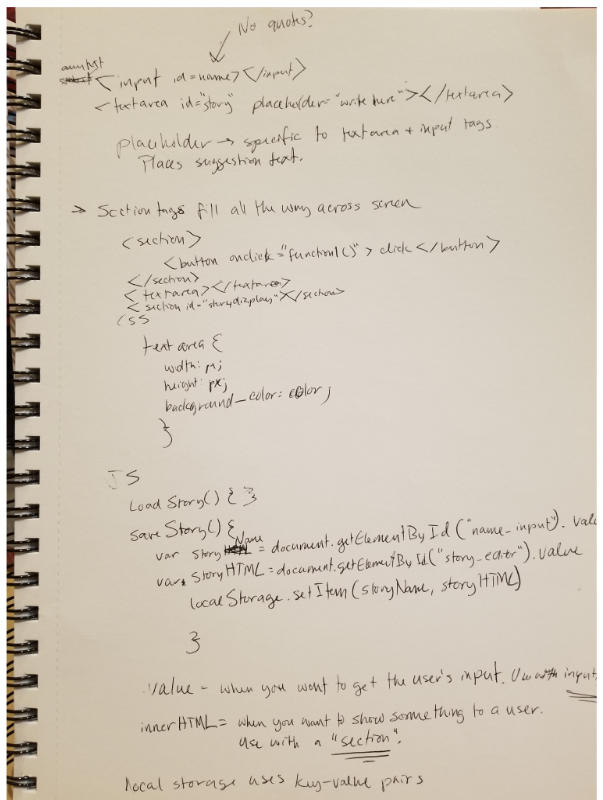 No quotes?
<input id=name></input>
<textarea id="story" placeholder="write here"></textarea>
placeholder → specific to textarea + input tags.
Places suggestion text.
→ Section tags fill all the way across screen
<section>
<button onclick="function1()" > click </button>
</section>
<textarea></textarea>
<section id="storydisplay"></section>
CSS
textarea {
width: px;
height: px;
background_color: color;
}
JS
load Story() { }
save Story() {
var storyName = document.getElementById("name_input").
var storyHTML = document.getElementById("story_editor").value
localStorage.setItem(storyName, storyHTML)
}
.value - when you want to get the user's input. Use with input
innerHTML = when you want to show something to a user.
use with a "section".
local storage uses key-value pairs